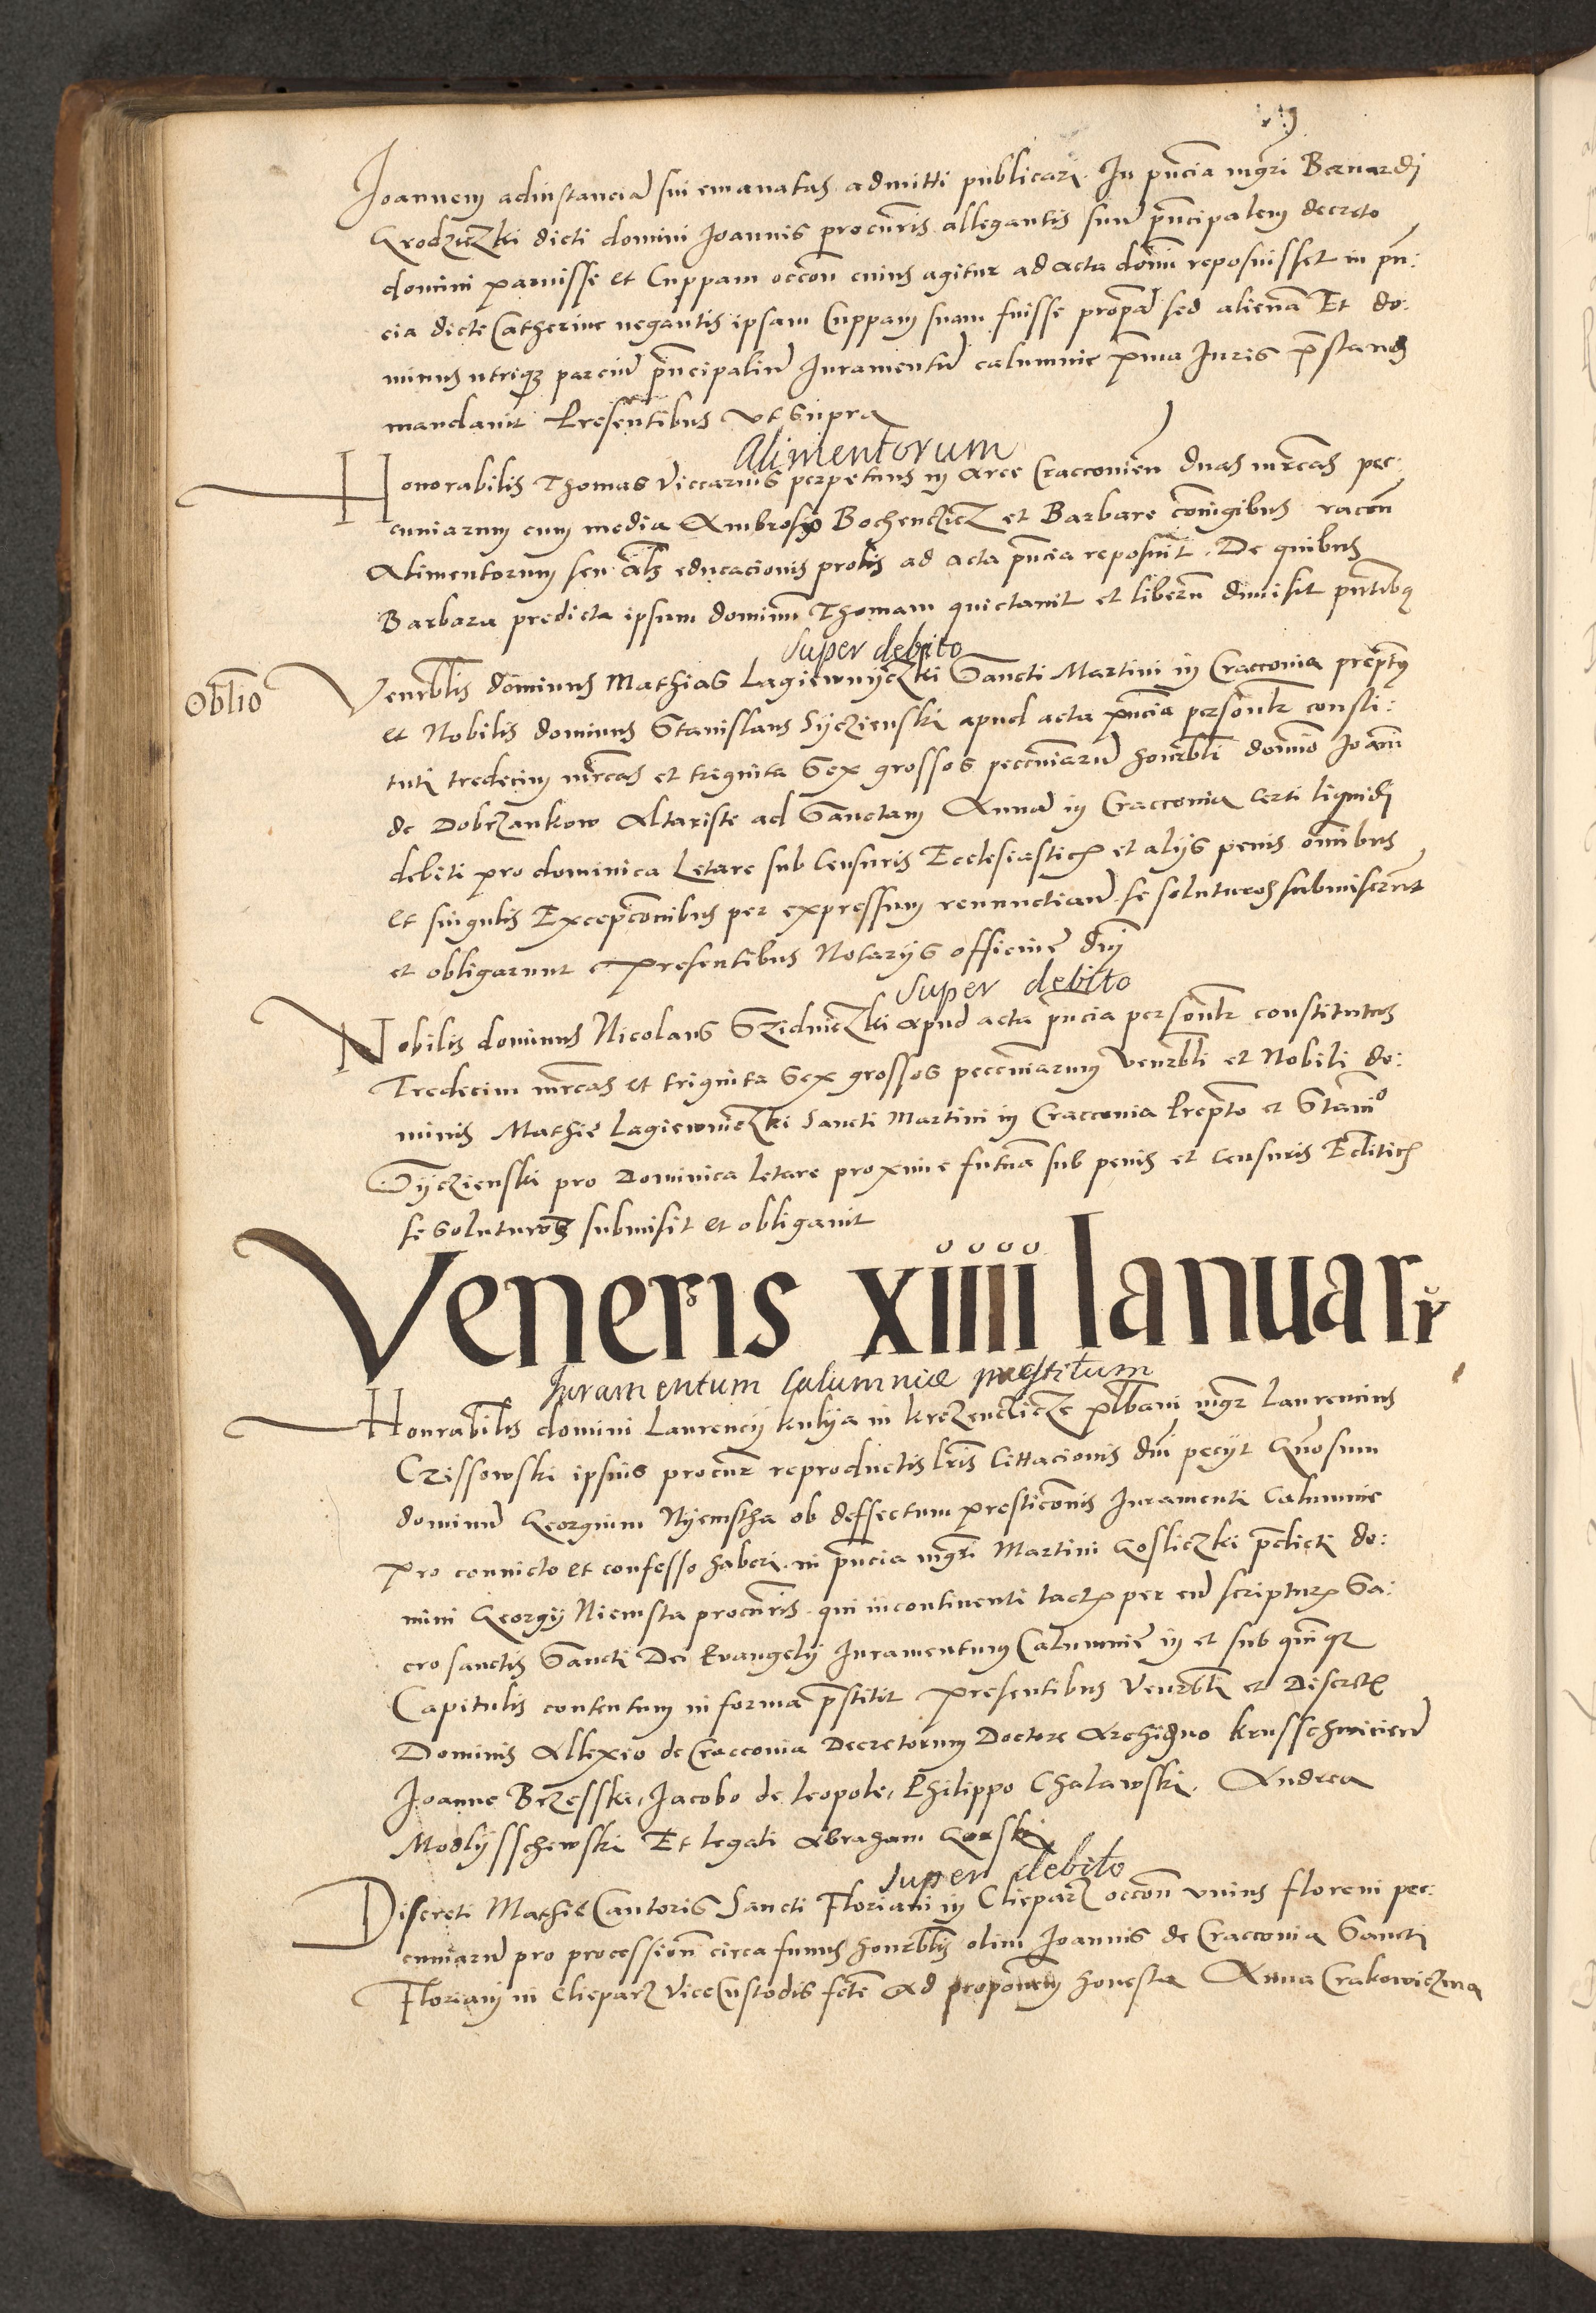 Joannem adinstanciam sui emanatas admitti publicari. In pñcia mgri Bernardi
Grodziczki dicti domini Joannis procuris allegantis suũ principalem decreto
domini paruisse et Cuppam occõn cuius agitur ad acta domini reposuisset in pñ:
cia dicte Catherine negantis ipsam Cuppam suam fuisse propriã sed alienã Et do:
minus utriqz parciũ principaliũ Juramentũ calumnie prima Juris prestandũ
mandavit Presentibus ut supra
Alimentorum
Honorabilis Thomas viccarius perpetuus in arce Cracconień duas mrcas pec:
cuniarum cum media Ambrosÿ Bochenczicz et Barbare cõniugibus racõn
Alimentorum seu als educacionis prolis ad acta pñcia reposuit. De quibus
Barbara predicta ipsum dominũ Thomam quietavit et liberũ dimisit pñtibq
super debito
Oblio
Venrblis dominus Mathias Lagiewnÿczki Sancti Martini in Cracconia preptq
et Nobilis dominus Stanislaus Sÿczienski apud acta pñcia personlr consti:
tuti tredecim mrcas et triginta sex grossos peccuniarũ honrbli domino Joanni
de Dobczankow Altariste ad Sanctam Annã in Cracconia certi liquidi
debiti pro dominica Letare sub Censuris Ecclesiasticis et alÿs penis omnibus
et singulis Excepcõnibus per expressum renunctiand se soluturos submiserunt
et obligarunt presentibus Notarÿs officine dni
super debito
Nobilis dominus Nicolaus Sziedniczki apud acta pñcia personlr constitutus
Tredecim mrcas et triginta sex grossos peccuniarum Venrbli et Nobili do:
minis Mathie Lagiewniczki Sancti Martini in Cracconia Prepto et Stanio
Sÿczienski pro Dominica Letare proxime futura sub penis et censuris Ecliticis
se soluturos submisit et obligavit
Veneris xiiii Ianuarÿ
Juramentum Calumniæ præstitum
Honrabilis domini Laurencÿ kulÿa in krzczenczicze plbani mgr Laurencius
Czissowski ipsius procur reproductis lris Cittacionis dni pecÿt Gnosum
dominũ Georgium Nÿemstha ob deffectum presticõnis Juramenti Calumnie
pro convicto et confesso haberi. in pñcia mgri Martini Gosliczki predicti do:
mini Georgÿ Niemsta procuris. qui incontinenti tactis per eũ scripturis Sa:
cro sanctis Sancti Dei Evangelÿ Juramentum Calumnie in et sub quinqz
Capitulis contentum in forma prestitit presentibus Venrbli et Discretis
Dominis Allexio de Cracconia Decretorum Doctore Archidno krusschwicień
Joanne Brzesski, Jacobo de Leopole, Philippo Chalawski. Andrea
Modlÿsschewski Et legati Abraham Gorski
super debito
Discreti Mathie Cantoris Sancti Floriani in Clieparz occõn unius floreni pec:
cuniarũ pro processione circa funus honrblis olim Joannis de Cracconia Sancti
Floriani in Clieparz vice Custodis fcte Ad proponem honesta Anna Crakowiczena